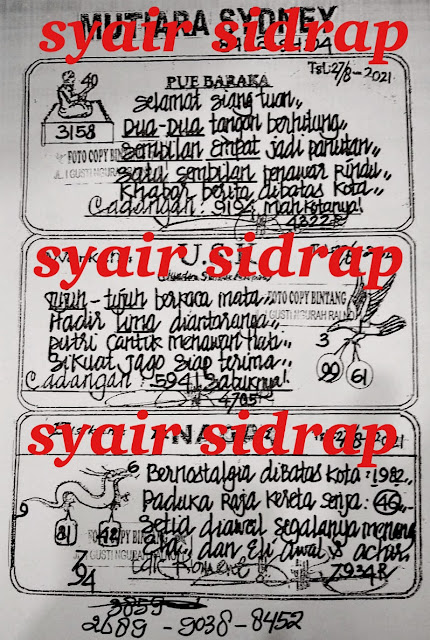 MUTIARA SYDNEY
syair sidrap
TSL:27/8-2021
40
3158
PUE BARAKA
Selamat siang tuan,,
Dua-Dua tangan berhitung,,
Sembilan Empat jadi panutan,,
Satu sembilan penawar rindu,,
Khabar berita dibatas kota,,
Cadangan: 9194 miah kotanya!
4322R
FOTO COPY BINTANG
JL. I GUSTI NGURAH
syair sidrap
Tujuh-tujuh berkaca mata,,
Hadir lima diantaranya,,
putri cantik menawan hati,,
Sikuat jago siap terima,,
Cadangan: 5941 Satuknya!
4705R
FOTO COPY BINTANG
GUSTI NGURAH RAI NO
3
99 61
syair sidrap
NAGA
2021
6
9
Bernostalgia dibatas kota: 1982,,
Paduka Raja kereta senja: 49,,
Setia diawal segalanya menang
dan Eli awal & achar,
7934R
FOTO COPY BINTANG
GUSTI NGURAH RAI NO
94
3859
2689-9038-8452